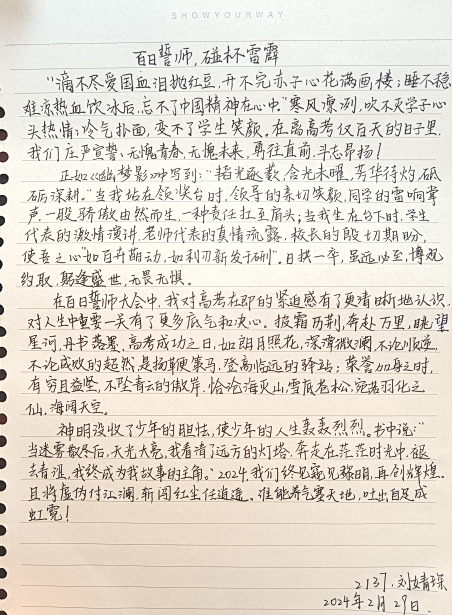 SHOWYOURWAY
百日誓师,碰杯雷霹
"滴不尽爱国血泪抛红豆,开不完赤子心花满画楼;睡不稳
难凉热血饮冰后,忘不了中国精神在心中"寒风凛冽,吹不灭学子心
头热情;冷气扑面,变不了学生笑颜,在离高考仅百天的日子里,
我们庄严宣誓、无愧青春、无愧未来,勇往直前,斗志昂扬!
正如《幽梦影》中写到:"韬光逐薮,含光未曜,芳华待灼,砥
砺深耕。"当我站在领奖台时,领导的亲切笑颜,同学的雷响掌
声,一股骄傲由然而生,一种责任扛至肩头;当我坐在台下时,学生
代表的激情演讲,老师代表的真情流露,校长的殷切期盼,
使吾之心"如百卉萌动,如利刃新发于硎"。日拱一卒,虽远必至,博观
约取,躬逢盛世,无畏无惧。
在百日誓师大会中,我对高考在即的紧迫感有了更清晰地认识,
对人生中重要一关有了更多底气和决心。披霜万荆,奔赴万里,眺望
星河,丹书落墨,高考成功之日,如朗月照花,深潭微澜,不论顺逆,
不论成败的超然,是扬鞭策马,登高临远的驿站;荣誉加身之时,
有穷且益坚,不坠青云的傲岸,恰沧海灭山,雪底苍松,宛若羽化之
仙,海阔天空。
神明没收了少年的胆怯,使少年的人生轰轰烈烈。书中说:"
当迷雾散尽后,天光大亮,我看清了远方的灯塔,奔走在茫茫时光中,褪
去青涩,我终成为我故事的主角。"2024,我们终见寇见黎明,再创辉煌,
且将虚伪付江澜,斩闯红尘任逍遥。谁能养气塞天地,吐出自足成
虹霓!
2137.刘婧琛
2024年2月29日.